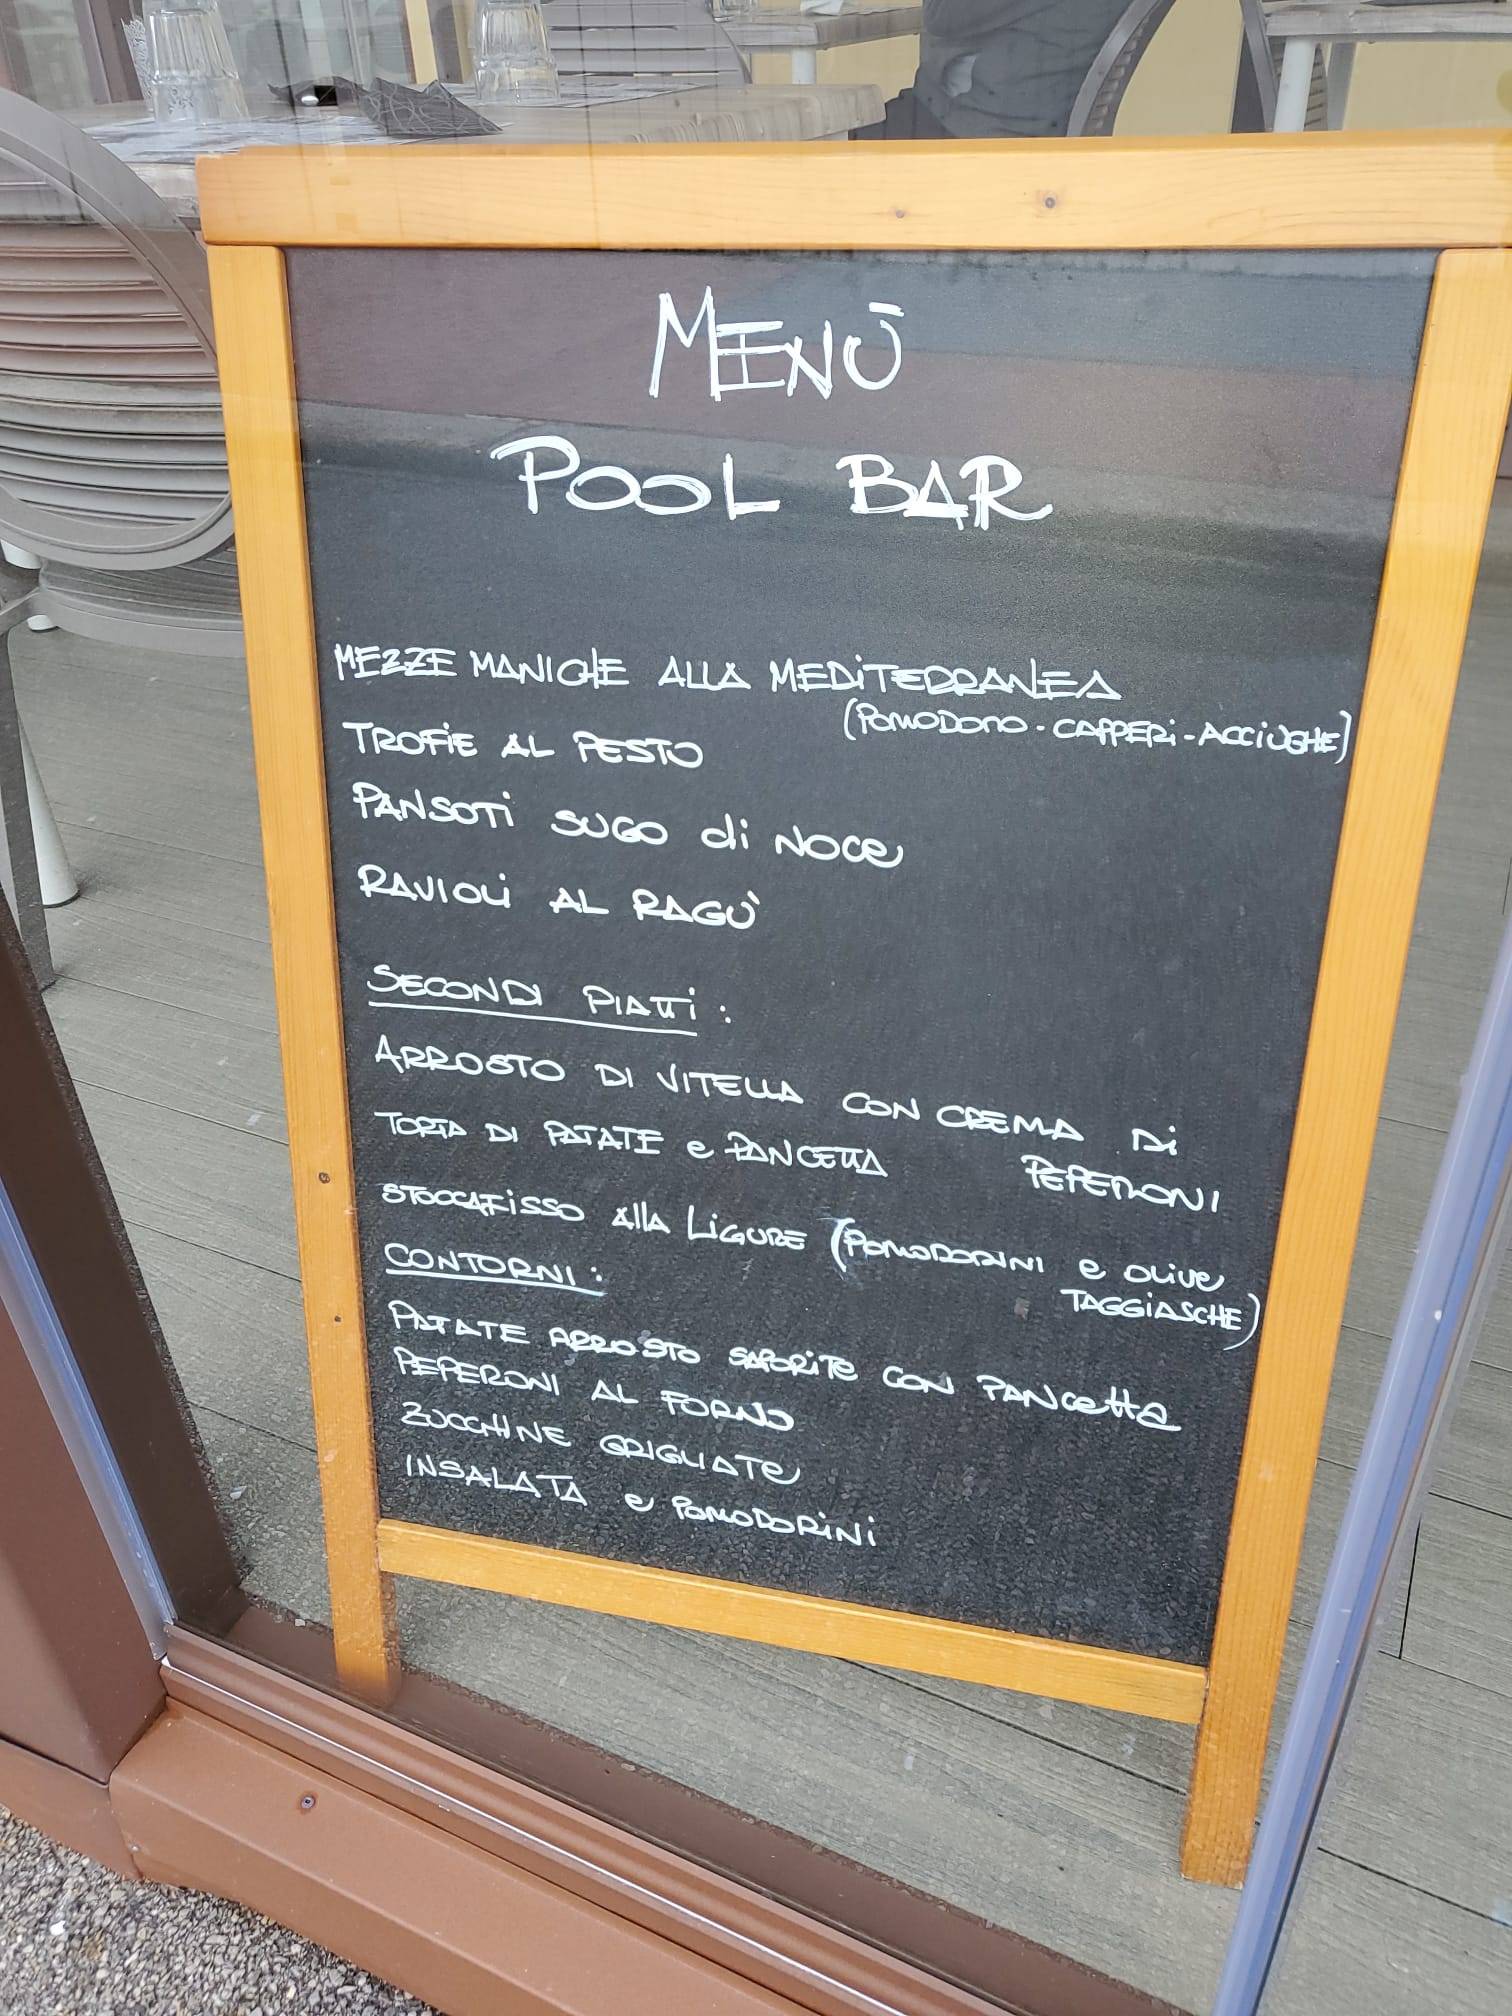 MENÙ
POOL BAR
MEZZE MANICHE ALLA MEDITERRANEA
(POMODORO - CAPPERI - ACCIUGHE)
TROFIE AL PESTO
PANSOTI SUGO di NOCE
RAVIOLI AL RAGÙ
SECONDI PIATTI:
ARROSTO DI VITELLA CON CREMA Di
PEPERONI
TORTA DI PATATE e PANCETTA
STOCCAFISSO AllA LIGURE (POMODORINI e OLIVE
TAGGIASCHE)
CONTORNI:
PATATE ARROSTO SAPORITE CON PANCETTA
PEPERONI AL FORNO
ZUCCHINE GRIGLIATE
INSALATA e POMODORINI